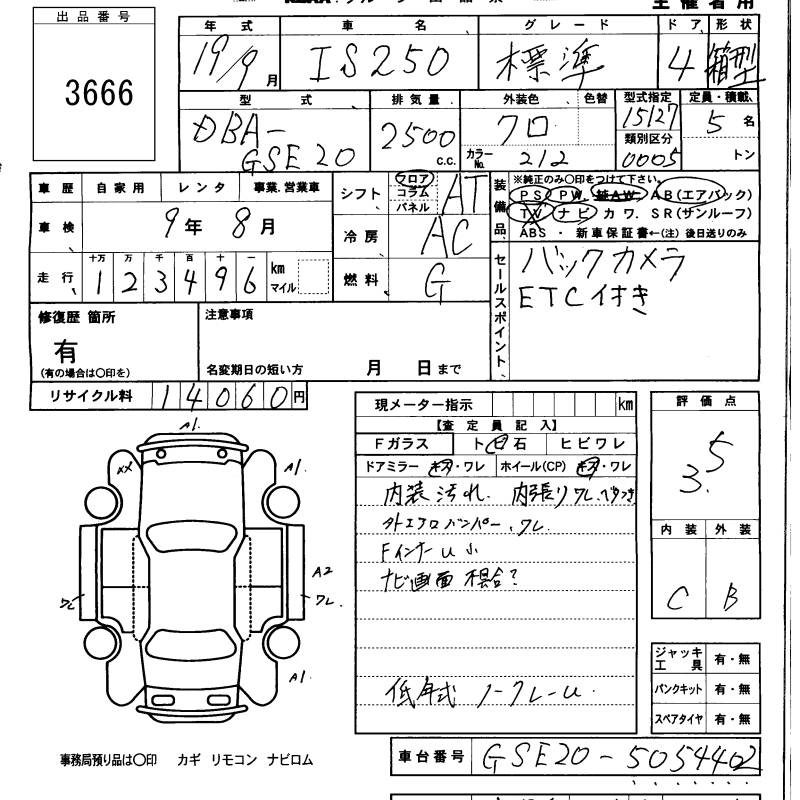 出品番号
3666
年式 車名 グレード ドア 形状
19/9月 IS250 標準 4 箱型
型式 排気量 外装色 色替 型式指定 定員・積載
DBA-GSE20 2500c.c. クロ 15127 5名
カラーNo. 212 類別区分 0005 トン
車歴 自家用 レンタ 事業.営業車
車検 9年8月
走行 十万 万 千 百 十 一
123496 km マイル
シフト フロア コラム パネル AT
冷房 AC
燃料 G
装備品 ※純正のみ○印をつけて下さい。
PS PW AW AB(エアバック)
TV ナビ カワ. SR(サンルーフ)
ABS ・ 新車保証書←(注) 後日送りのみ
セールスポイント
バックカメラ
ETC付き
修復歴 箇所
有
(有の場合は○印を)
注意事項
名変期日の短い方 月 日まで
リサイクル料 14060円
現メーター指示 km
【査定員記入】
Fガラス トビ石 ヒビワレ
ドアミラー キズ・ワレ ホイール(CP) キズ・ワレ
内装汚れ. 内張りワレ.ベタつき
外エアロバンパー、ワレ
FインナーU小
ナビ画面不具合?
低年式 ノークレーム
評価点
3.5
内装 外装
C B
ジャッキ工具 有・無
パンクキット 有・無
スペアタイヤ 有・無
A1.
XX
A1.
A2
ワレ
ワレ.
A1.
事務局預り品は○印 カギ リモコン ナビロム
車台番号 GSE20-5054402